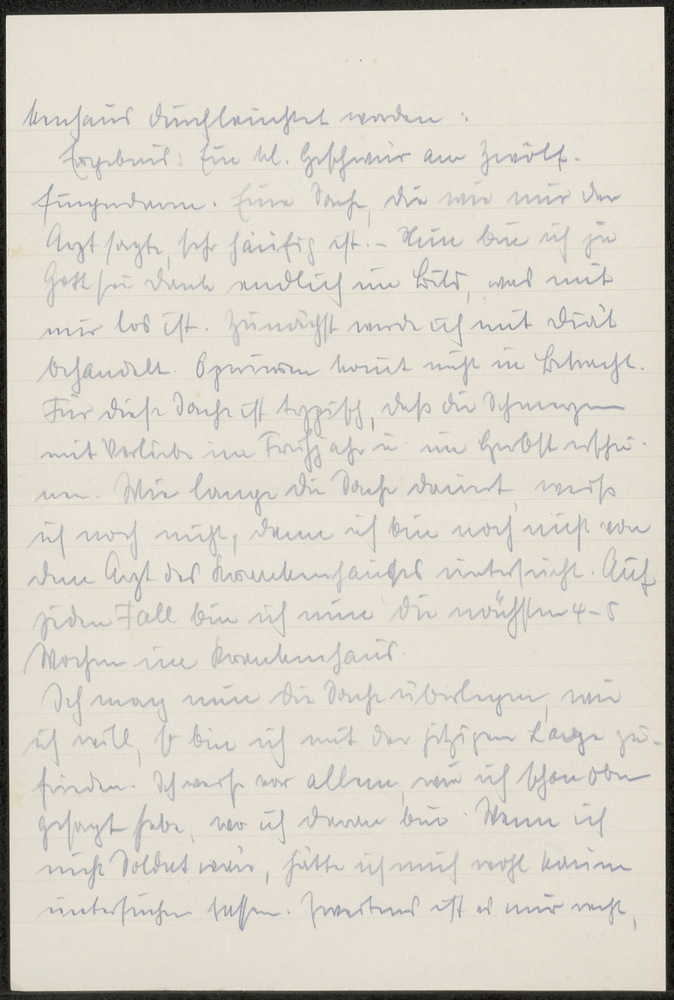 kenhaus durchleuchtet worden:
Ergebnis: Ein kl. Geschwür am Zwölf-
fingerdarm. Eine Sache, die wie mir der
Arzt sagte, sehr häufig ist. - Nun bin ich ja
Gott sei Dank endlich im Bild, was mit
mir los ist. Zunächst werde ich mit Diät
behandelt. Operieren komt nicht in Betracht.
Für diese Sache ist typisch, daß die Schmerzen
mit Vorliebe im Frühjahr u. im Herbst erschei-
nen. Wie lange die Sache dauert, weiß
ich noch nicht, denn ich bin noch nicht von
dem Arzt des Krankenhauses untersucht. Auf
jeden Fall bin ich nun die nächsten 4-5
Wochen im Krankenhaus.
Ich mag nun die Sache überlegen, wie
ich will, so bin ich mit der jetzigen Lage zu-
frieden. Ich weiß vor allem, wie ich schon oben
gesagt habe, wo ich daran bin. Wenn ich
nicht Soldat wär, hätte ich mich wohl kaum
untersuchen lassen. Zweitens ist es mir recht,